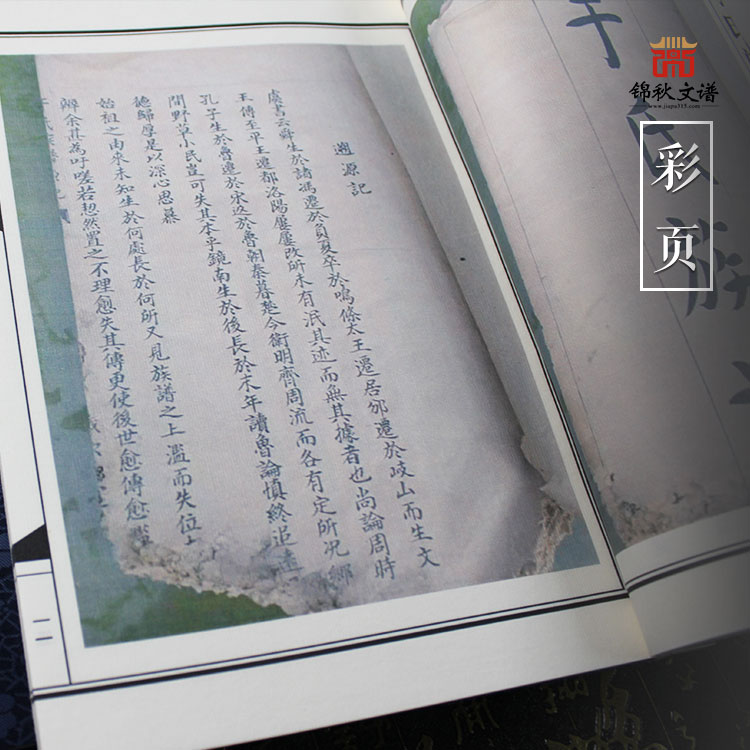 遡源記
虞書云舜生於諸馮遷於負夏卒於鳴條太王遷居邠遷於岐山而生文
王傳至平王遷都洛陽屢屢改所未有泯其迹而無其據者也尚論周時
孔子生於魯遷於宋返於魯朝秦暮楚今衛明齊周流而各有定所况鄉
間野草小民豈可失其本乎鏡南生於後長於末年讀魯論慎終追遠
德歸厚是以深心思慕
始祖之由來未知生於何處長於何所又見族譜之上濫而失位
辭余甚為吁嗟若恝然置之不理愈失其傳更使後世愈傳愈
二
锦秋文谱
www.jiapu315.com
彩页
氏
族